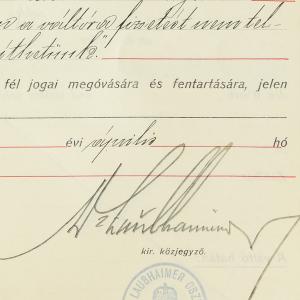 a váltóra fizetést nem tel-
jesíthetünk".
fél jogai megóvására és fentartására, jelen
évi április hó
Dr Laubhaimer
kir. közjegyző.
LAUBHAIMER OSZ